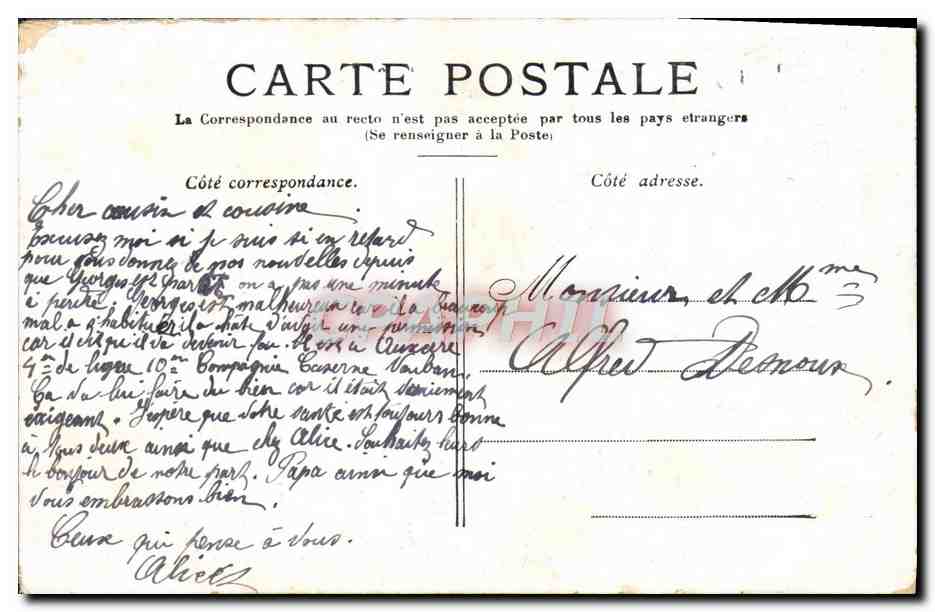 CARTE POSTALE
La Correspondance au recto n'est pas acceptée par tous les pays etrangers
(Se renseigner à la Poste)
Côté correspondance.
Cher cousin et cousine.
Excusez moi si je suis si en retard
pour vous donnez de nos nouvelles depuis
que Georges est partit on a pas une minute
à perdre. Georges est malheureux car il a beaucoup
mal a s'habituer il a hâte d'avoir une permission
car il dit qu'il va devenir fou. Il est à Auxerre
4me de ligne 10me Compagnie Caserne Vauban.
Ça va lui faire du bien car il était
exigeant. J'espère que votre santé est toujours bonne
à vous deux ainsi que chez Alice. Souhaitez leurs
le bonjour de notre part. Papa ainsi que moi
vous embrassons bien.
Ceux qui pense à vous.
Alice
Côté adresse.
Monsieur et Mme
Alfred Desnoux.